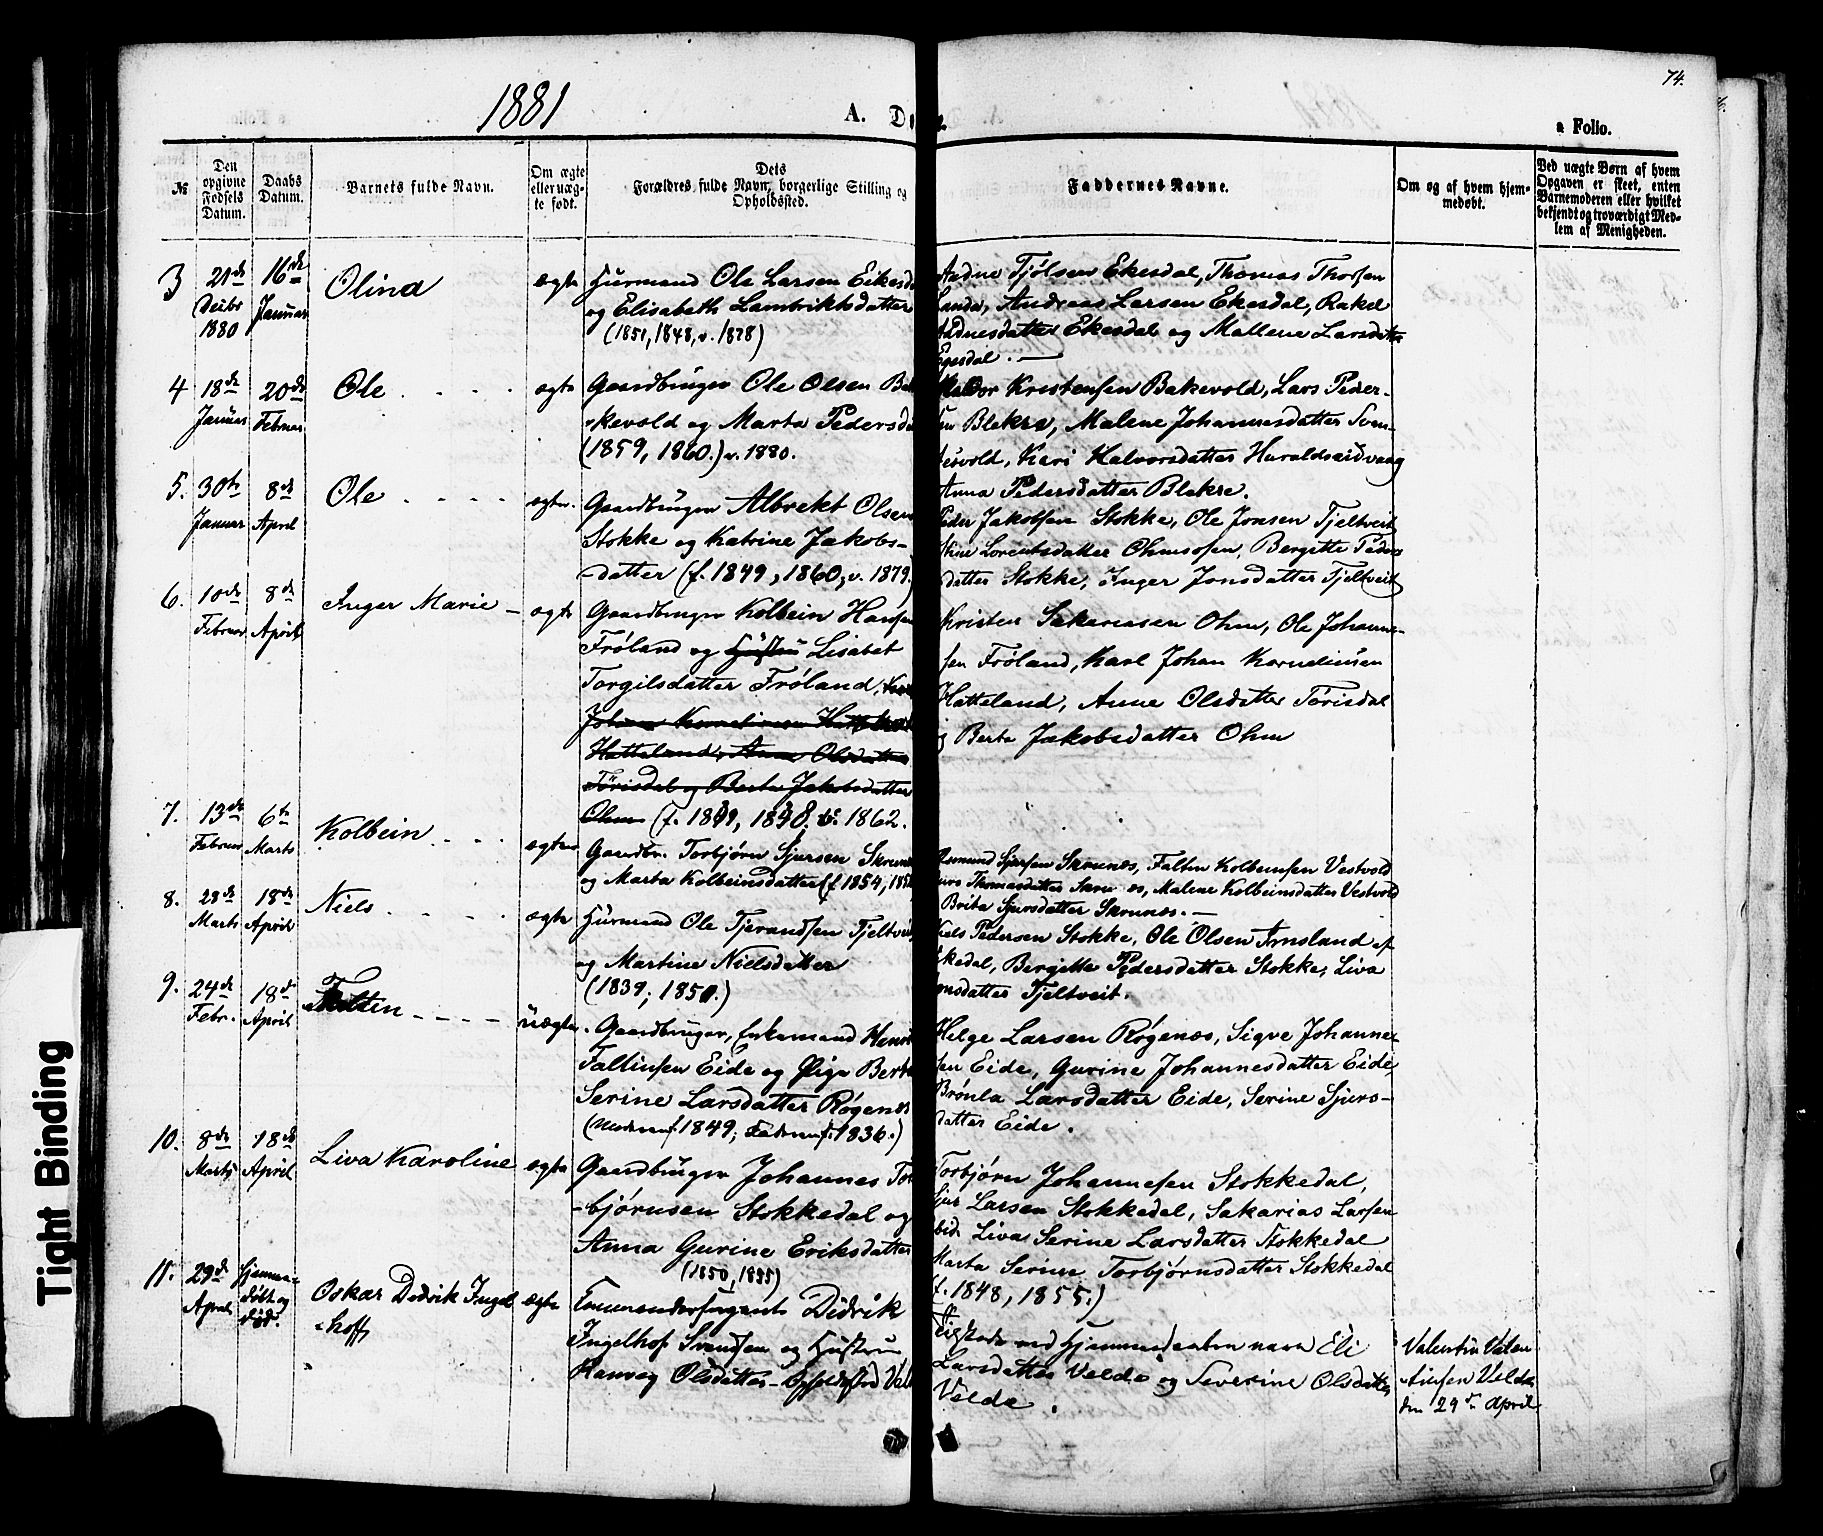 74.
1881
A. D
a Folio.
№
Den opgivne Fødsels Datum.
Daabs Datum.
Barnets fulde Navn.
Om ægte eller uægte født.
Dets Forældres fulde Navn, borgerlige Stilling og Opholdssted.
Faddernes Navne.
Om og af hvem hjemmedøbt.
Ved uægte Børn af hvem Opgaven er skeet, enten Barnemoderen eller hvilket bekjendt og troværdigt Medlem af Menigheden.
3 21de Decbr 1880
16de Januar
Olina
ægte
Huusmand Ole Larsen Eikesd
og Elisabeth Lambriktsdatter
(1851, 1848, v. 1878)
Aadne Tjølsen Ekesdal, Thomas Thorsen
Landa, Andreas Larsen Ekesdal, Rakel
Aadnesdatter Ekesdal og Mallene Larsdatter
Egesdal.
4 18de Januar
20de Februar
Ole
ægte
Gaardbruger Ole Olsen Ba
kevold og Marta Pedersd
(1859, 1860.) v. 1880.
Kristensen Bakevold, Lars Peder-
sen Blekre, Malene Johannesdatter Sven-
nesvold, Kari Halvorsdatter Haraldseidvaag
Anna Pedersdatter Blekre.
5. 30te Januar
8de April
Ole
ægte.
Gaardbruger Albrekt Olsen
Stokke og Katrine Jakobs-
datter (f. 1849, 1860, v. 1879.)
Peder Jakobsen Stokke, Ole Jonsen Tjeltveit
Stine Lorentsdatter Ohmsosen, Bergitte Peders
datter Stokke, Inger Jonsdatter Tjeltveit
6. 10de Februar
8de April
Inger Marie
ægte
Gaardbruger Kolbein Hansen
Frøland og Hustru Lisabet
Torgilsdatter Frøland,
Johan Kornelinsen
Hatteland, Anne Olsdatter
Tørisdal og Berta Jakobsdatter
Ohm (f. 1839, 1838. v. 1862.
Kristen Sakariasen Ohm, Ole Johanne-
sen Frøland, Karl Johan Kornelinsen
Hatteland, Anne Olsdatter Tørisdal
g Berta Jakobsdatter Ohm
7. 13de Februar
6te Marts
Kolbein
ægte
Gaardbr. Torbjørn Sjursen Skrunes
og Marta Kolbeinsdatter (f. 1854, 185
Asmund Sjursen Skrunes, Falten Kolbeinsen Vestvold
Thomasdatter, Malene Kolbeinsdatter Vestvold
Brita Sjursdatter Skrunes.
8. 28de Marts
18de April
Niels
ægte
Huusmand Ole Tjerandsen Tjeltveit
og Martine Nielsdatter
(1839, 1850.)
Niels Pedersen Stokke, Ole Olsen Amsland af
Ekedal, Bergitte Pedersdatter Stokke, Liva
onsdatter Tjeltveit.
9. 24de Febr.
18de April
Falten
uægte.
Gaardbruger, Enkemand Henri
Faltinsen Eide og Pige Berta
Serine Larsdatter Røgenes
(Moderen f. 1849; Faderen f. 1836.)
Helge Larsen Røgenes, Sigve Johanne-
sen Eide, Gurine Johannesdatter Eide,
Brønla Larsdatter Eide, Serine Sjurs-
datter Eide.
10. 8de Marts
18de April
Liva Karoline
ægte
Gaardbruger Johannes Tor
bjørnsen Stokkedal og
Anna Gurine Eriksdatter
(1850, 1855)
Torbjørn Johannesen Stokkedal,
Sjur Larsen Stokkedal, Sakarias Larsen
ibid. Liva Serine Larsdatter Stokkedal
Marta Serine Torbjørnsdatter Stokkedal
(f. 1848, 1855.)
11. 29de April
hjemme-
døbt og
død.
Oskar Didrik Ingel
hoff
ægte
Commandersergeant Didrik
Ingelhof Svendsen og Hustru
Ranveg Olsdatter - Opholdssted Vel
Tilstede ved Hjemmedaaben var Eli
Larsdatter Velde og Severine Olsdatter
Velde.
Valentin Valen
tinsen Velde
den 29de April
Tight Binding